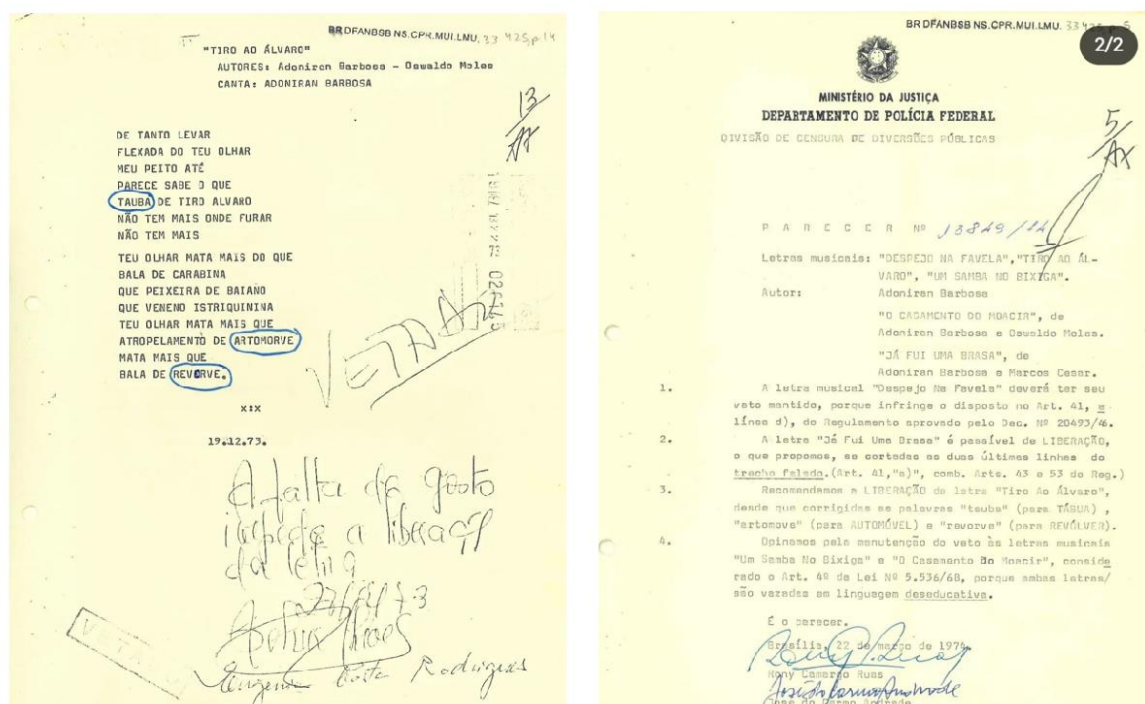 BR DFANBSB NS.CPR.MUI.LMU. 33 425, p. 14
"TIRO AO ÁLVARO"
AUTORES: Adoniran Barbosa - Oswaldo Moles
CANTA: ADONIRAN BARBOSA
13
DE TANTO LEVAR
FLEXADA DO TEU OLHAR
MEU PEITO ATÉ
PARECE SABE O QUE
TAUBA DE TIRO ALVARO
NÃO TEM MAIS ONDE FURAR
NÃO TEM MAIS
TEU OLHAR MATA MAIS DO QUE
BALA DE CARABINA
QUE PEIXEIRA DE BAIANO
QUE VENENO ISTRIQUININA
TEU OLHAR MATA MAIS QUE
ATROPELAMENTO DE ARTOMORVE
MATA MAIS QUE
BALA DE REVORVE.
VETADA
xix
19.12.73.
A falta de gosto
impede a liberação
da letra
Eugenia Costa Rodrigues
VETA
BR DFANBSB NS.CPR.MUI.LMU. 33 425, p. 5
2/2
MINISTÉRIO DA JUSTIÇA
DEPARTAMENTO DE POLÍCIA FEDERAL
DIVISÃO DE CENSURA DE DIVERSÕES PÚBLICAS
5
P A R E C E R Nº 13849/74
Letras musicais: "DESPEJO NA FAVELA", "TIRO AO ÁL-
VARO", "UM SAMBA NO BIXIGA".
Autor: Adoniran Barbosa
"O CASAMENTO DO MOACIR", de
Adoniran Barbosa e Oswaldo Moles.
"JÁ FUI UMA BRASA", de
Adoniran Barbosa e Marcos Cesar.
1. A letra musical "Despejo Na Favela" deverá ter seu
veto mantido, porque infringe o disposto no Art. 41, a-
línea d), do Regulamento aprovado pelo Dec. Nº 20493/46.
2. A letra "Já Fui Uma Brasa" é passível de LIBERAÇÃO,
o que propomos, se cortadas as duas últimas linhas do
trecho falado.(Art. 41,"a)", comb. Arts. 43 e 53 do Reg.)
3. Recomendamos a LIBERAÇÃO da letra "Tiro Ao Álvaro",
desde que corrigidas as palavras "tauba" (para TÁBUA) ,
"artomove" (para AUTOMÓVEL) e "revorve" (para REVÓLVER).
4. Opinamos pela manutenção do veto às letras musicais
"Um Samba No Bixiga" e "O Casamento Do Moacir", conside
rado o Art. 4º da Lei Nº 5.536/68, porque ambas letras/
são vazadas em linguagem deseducativa.
É o parecer.
Brasília, 22 de março de 1974.
Rony Camargo Ruas
José do Carmo Andrade